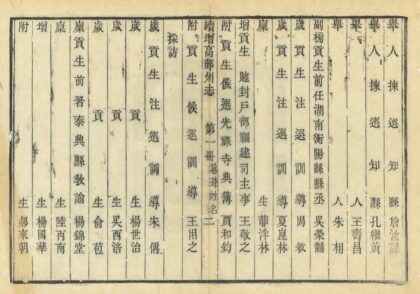 舉人揀選知縣詹汝諧
舉人揀選知縣孔繼黃
舉人王壽昌
舉人朱相
副榜貢生前任湖南衡陽縣縣丞吳榮譜
歲貢生注選訓導周敘
歲貢生注選訓導夏崑林
廩生華泮林
增貢生馳封戶部福建司主事王敬之
附貢生候選光祿寺典簿賈和鈞
續增高郵州志 第一冊纂脩姓名二
附貢生候選訓導王用之
採訪
歲貢生注選訓導朱儁
歲貢生楊世治
歲貢生吳西浩
歲貢生俞苞
廩貢生前署泰興縣敎諭楊錦堂
廩生陸丙南
增生楊國華
附生來朝